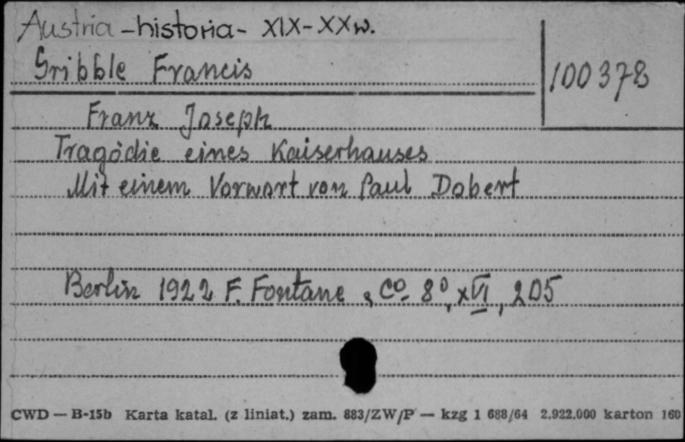 Austria - historia - XIX-XXw.
Gribble Francis
100378
Franz Joseph
Tragödie eines Kaiserhauses
Mit einem Vorwort von Paul Dobert
Berlin 1922 F. Fontane & Co. 8°, XVI, 205
CWD — B-15b Karta katal. (z liniat.) zam. 883/ZW/P — kzg 1 688/64 2.922.000 karton 160